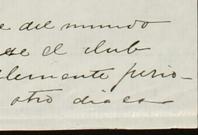 e del mundo
se el club
lemente perio-
otro dia es